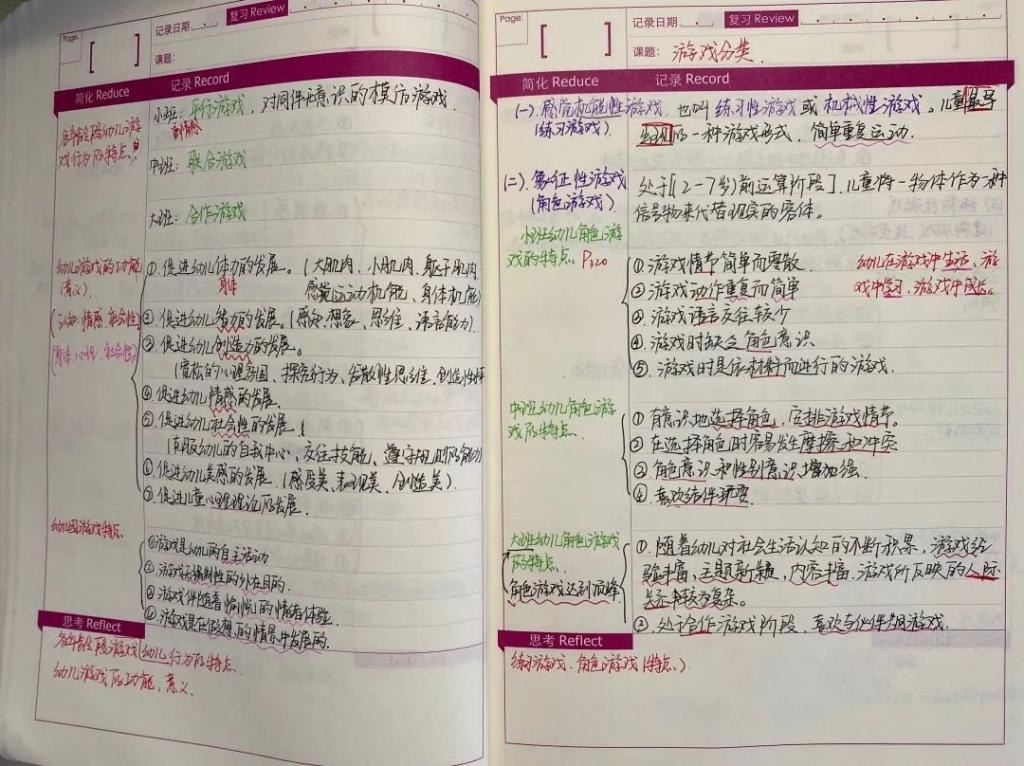 Page.
记录日期
复习 Review
课题:
简化 Reduce
记录 Record
各年龄段幼儿游
戏行为的特点.
小班: 平行游戏, 对同伴无意识的模仿游戏.
中班: 联合游戏
大班: 合作游戏
幼儿游戏的功能
(意义).
(认知、情感、社会性)
① 促进幼儿体力的发展。(大肌肉、小肌肉、躯干肌肉、
身体
感觉运动机能、身体机能)
② 促进幼儿智力的发展。(感知、想象、思维、语言能力).
③ 促进幼儿创造力的发展。
(宽松的心理氛围、探究行为、发散性思维、创造性
④ 促进幼儿情感的发展.
⑤ 促进幼儿社会性的发展.
(克服幼儿的自我中心、交往技能、遵守规则的能力)
⑥ 促进幼儿美感的发展. (感受美、表现美、创造美).
⑦ 促进儿童心理理论的发展.
幼儿园游戏特点.
①游戏是幼儿的自主活动
②游戏无强制性的外在目的.
③游戏伴随着愉悦的情绪体验.
④游戏是在假想的情景中发展的.
思考 Reflect
各年龄段游戏幼儿行为的特点.
幼儿游戏的功能、意义.
Page.
记录日期
复习 Review
课题: 游戏分类.
简化 Reduce
记录 Record
(一). 感觉机能性游戏, 也叫练习性游戏或机械性游戏。儿童最早
(练习游戏).
出现的一种游戏形式, 简单重复运动.
(二). 象征性游戏
(角色游戏).
处于[(2-7岁)前运算阶段], 儿童将一物体作为一种
信号物来代替现实的客体。
小班幼儿角色游
戏的特点. P320
① 游戏情节简单而零散.
② 游戏动作重复而简单
③ 游戏语言交往较少
④ 游戏时缺乏角色意识
⑤ 游戏时是依材料而进行的游戏.
幼儿在游戏中生活、游
戏中学习、游戏中成长。
中班幼儿角色游
戏的特点.
① 有意识地选择角色, 安排游戏情节。
② 在选择角色时容易发生摩擦和冲突
③ 角色意识和性别意识增加强.
④ 喜欢结伴玩耍.
大班幼儿角色游戏
的特点.
角色游戏达到顶峰
① 随着幼儿对社会生活认知的不断积累, 游戏经
验丰富, 主题新颖, 内容丰富, 游戏所反映的人际
关系较为复杂。
② 处于合作游戏阶段, 喜欢与伙伴共同游戏.
思考 Reflect
练习游戏、角色游戏 (特点.)